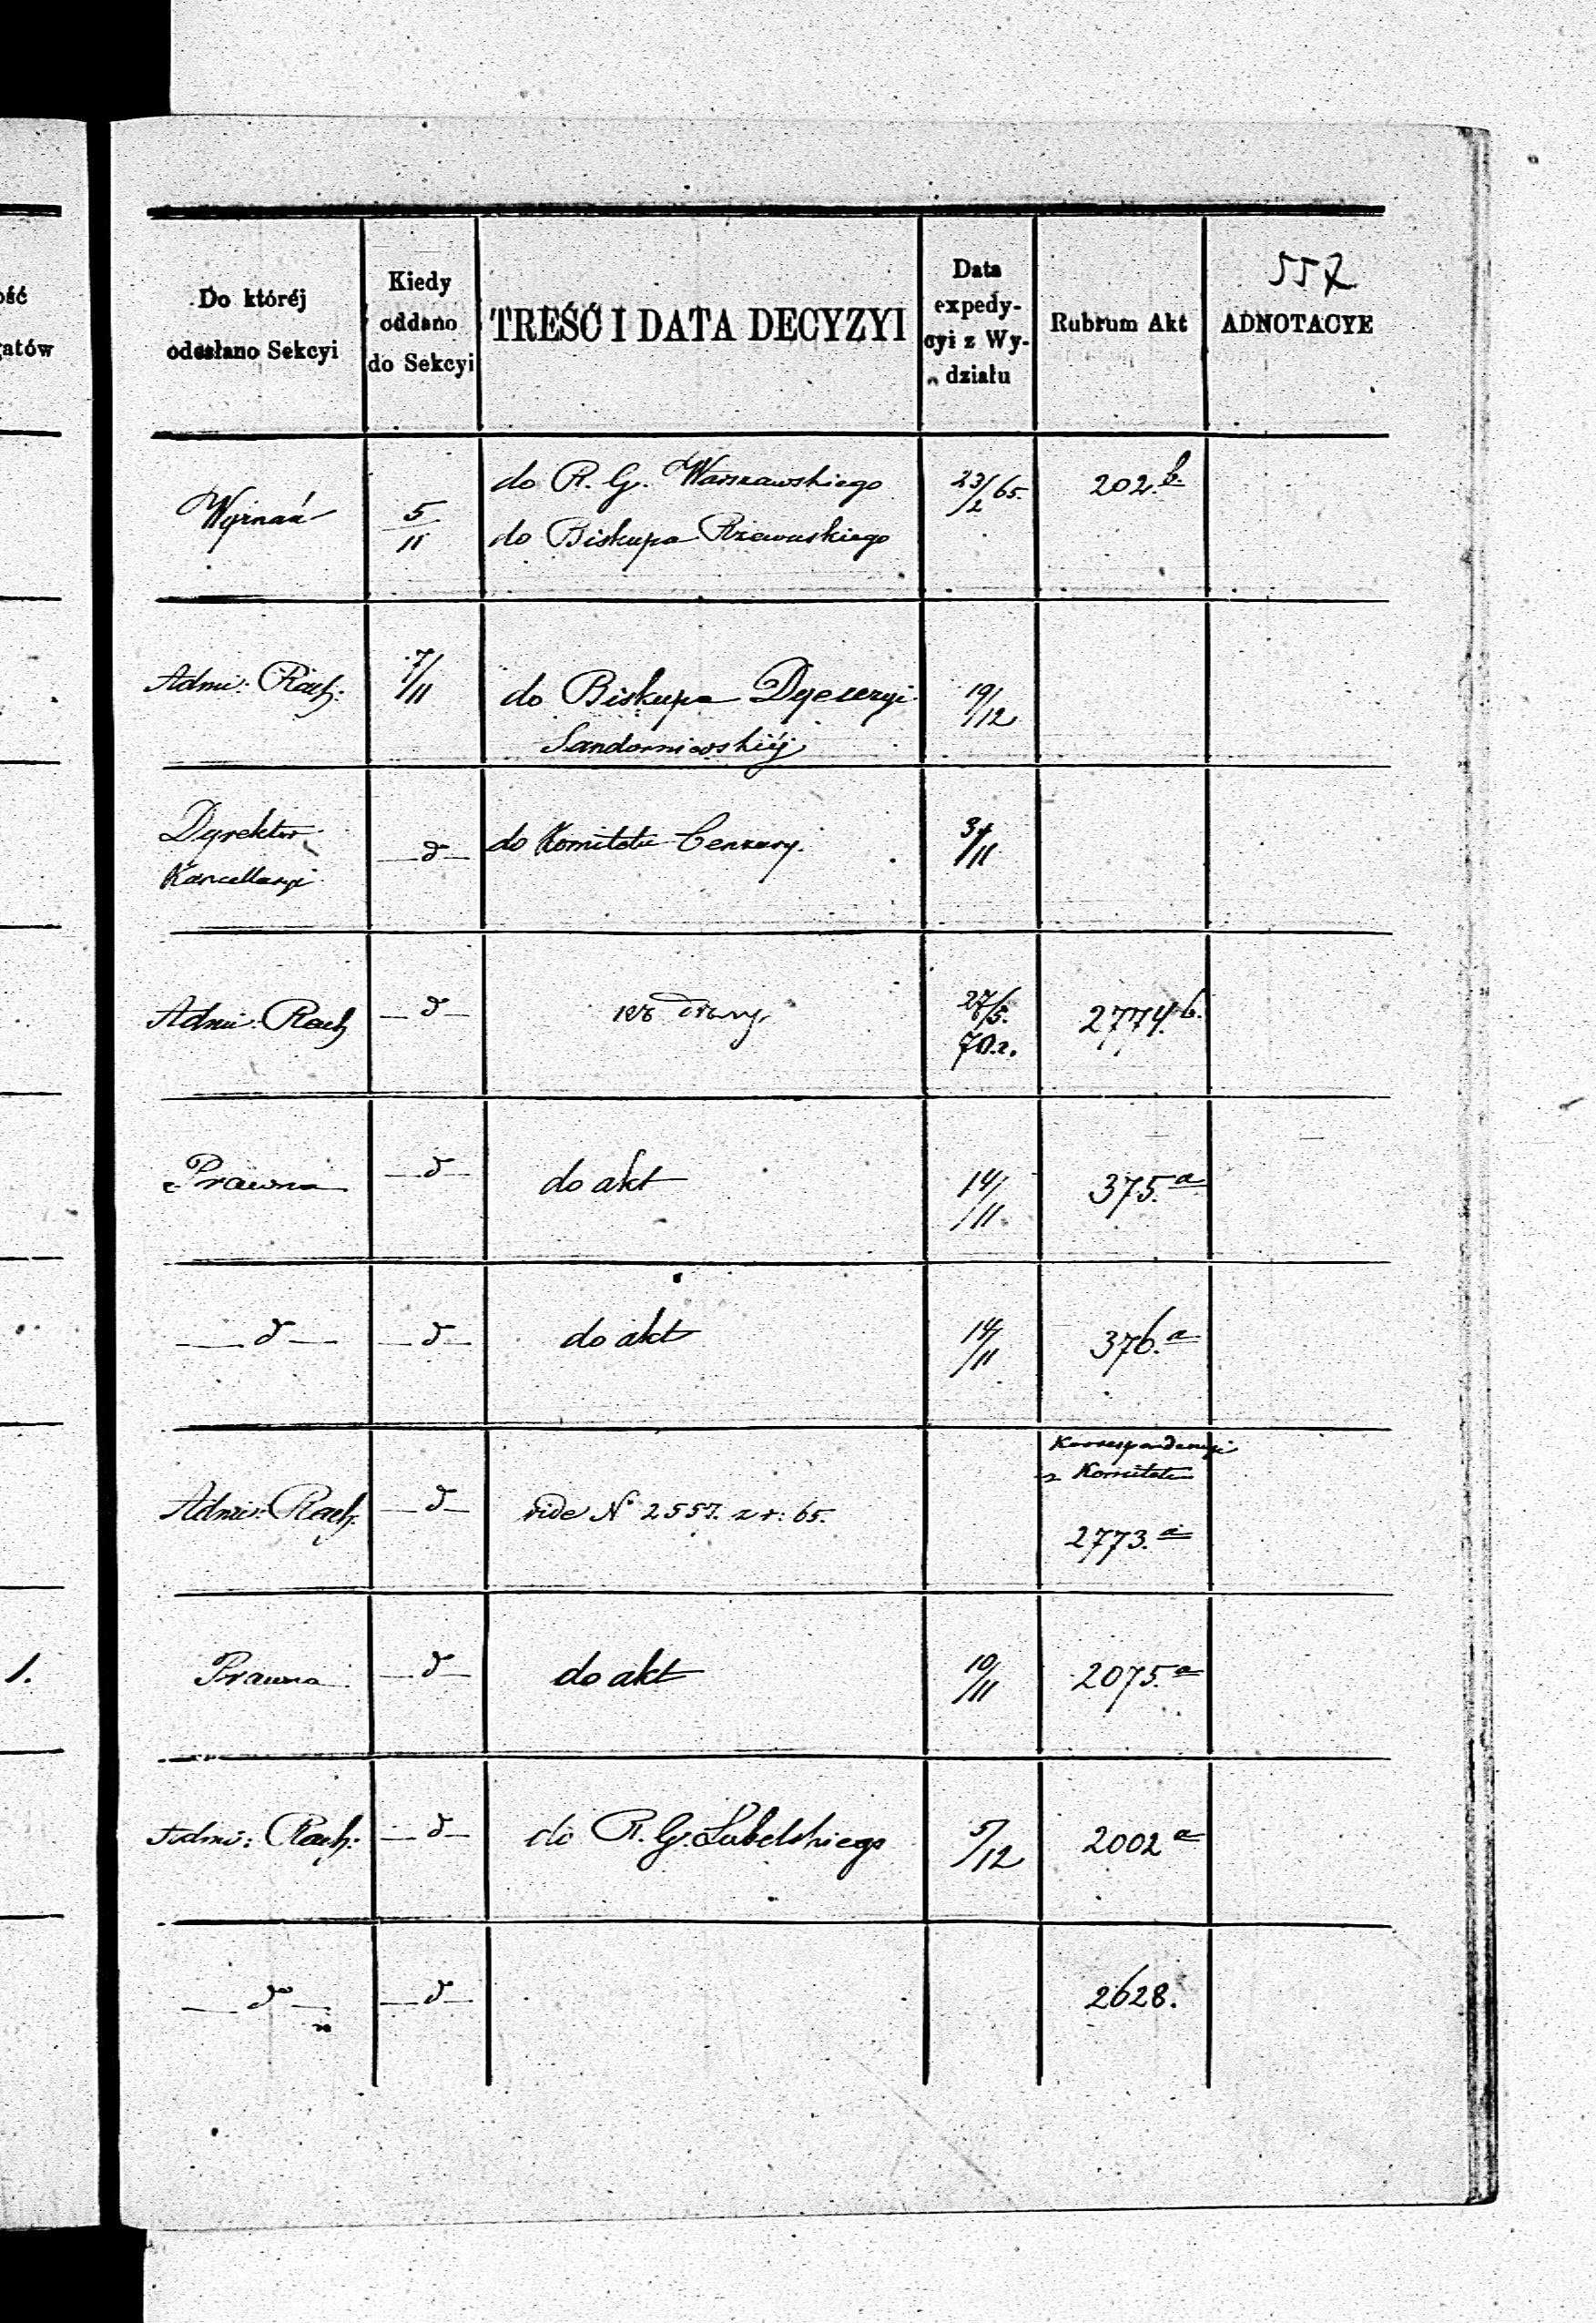 557
ość
gatów
Do któréj
odesłano Sekcyi
Kiedy
oddano
do Sekcyi
TREŚĆ I DATA DECYZYI
Data
expedy-
cyi z Wy-
działu
Rubrum Akt
ADNOTACYE
Wyznań
5/11
do R. G. Warszawskiego
do Biskupa Rzewuskiego
23/2 65.
202.b.
Admi: Rach:
7/11
do Biskupa Dyecezyi
Sandomierskiéj
19/12
Dyrektor
Kancellaryi
— d —
do Komitetu Cenzury.
3/11
Admi: Rach
— d —
27/5.
70.r.
2774.b.
Prawna
— d —
do akt
14/11
375.a
— d —
— d —
do akt
14/11
376.a
Admi: Rach.
— d —
vide N° 2557. z r: 65.
Korrespondencyi
z Komitetu
2773.a
1.
Prawna
— d —
do akt
10/11
2075.a
Admi: Rach:
— d —
do R. G. Lubelskiego
5/12
2002 a
— d° —
— d —
2628.